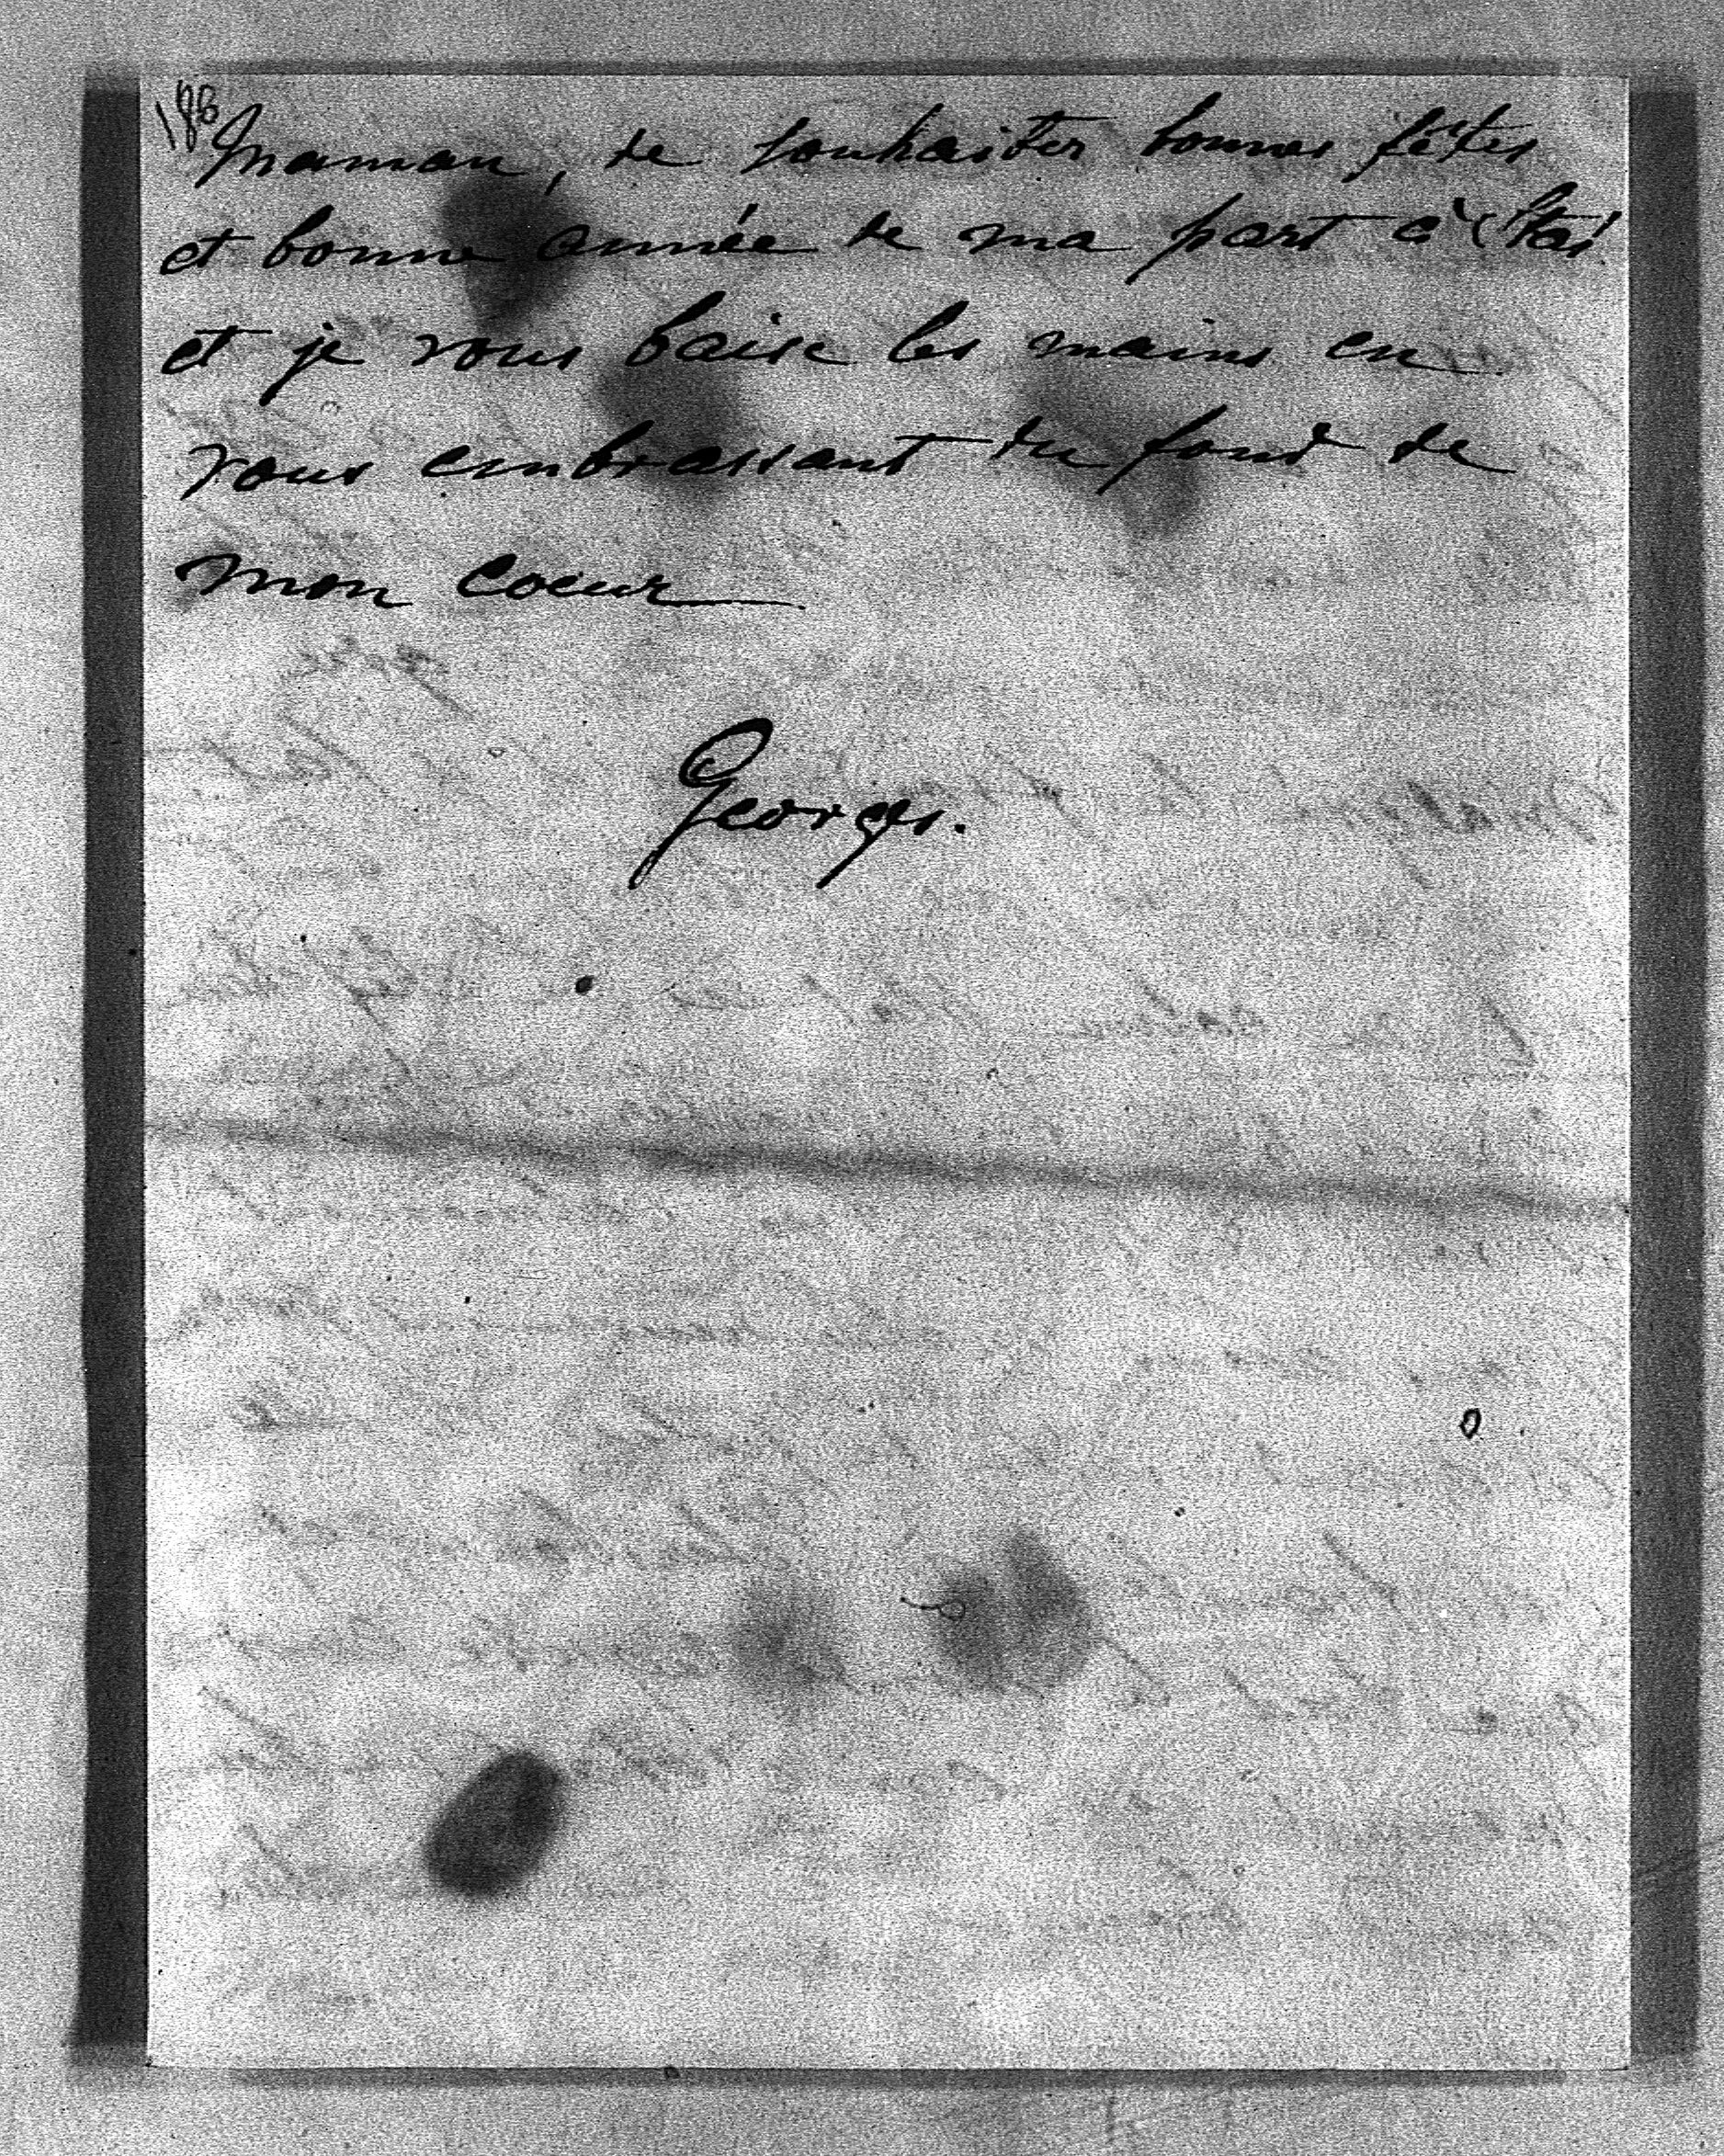 186
Maman, de souhaiter bonnes fêtes
et bonne année de ma part à
et je vous baise les mains en
vous embrassant du fond de
mon coeur
Georges.